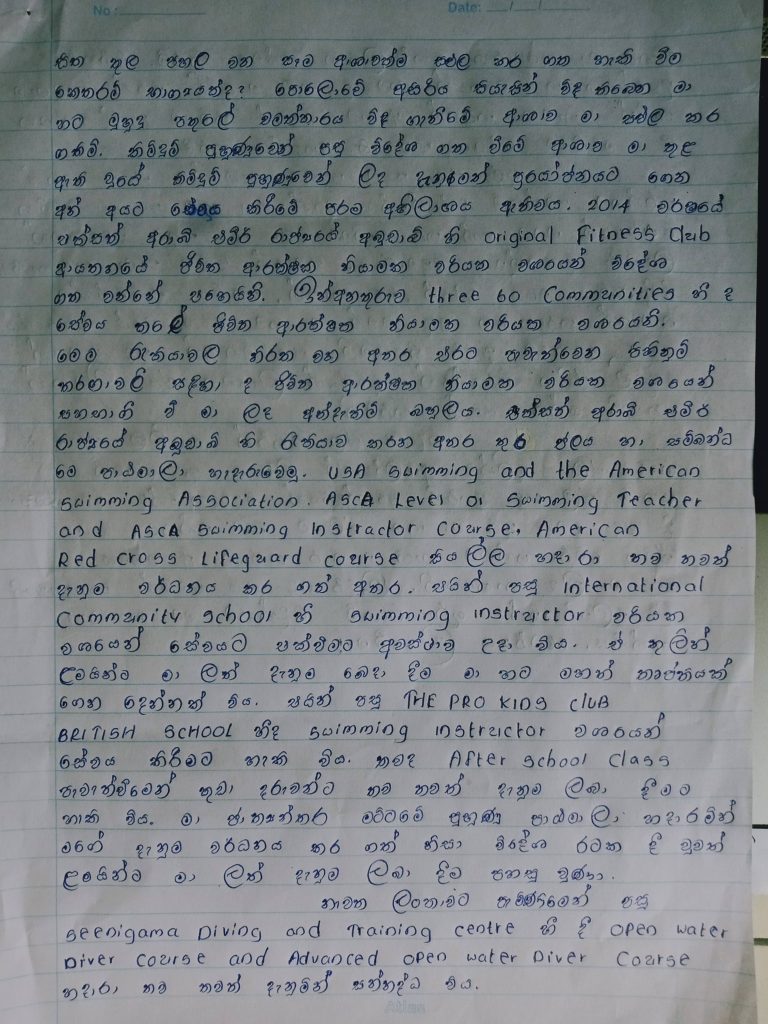 No :                                        Date:
සිත තුල පහල වන සෑම ආශාවක්ම සඵල කර ගත හැකි වීම
කෙතරම් භාග්‍යයක්ද? පොලොවේ අසිරිය සියැසින් විඳ තිබෙන මා
හට මුහුදු පතුලේ චමත්කාරය විඳ ගැනීමේ ආශාව මා සඵල කර
ගතිමි. කිමිදුම් පුහුණුවෙන් පසු විදේශ ගත වීමේ ආශාව මා තුළ
ඇති වූයේ කිමිදුම් පුහුණුවෙන් ලද දැනුමෙන් ප්‍රයෝජනයට ගෙන
අන් අයට සේවය කිරීමේ පරම අභිලාශය ඇතිවය. 2014 වර්ෂයේ
එක්සත් අරාබි එමීර් රාජ්‍යයේ අබුඩාබි හි original Fitness Club
ආයතනයේ ජීවිත ආරක්ෂක නියාමක වරියක වශයෙන් විදේශ
ගත වන්නේ පනෙයිනි. ඉන්අනතුරුව three 60 Communities හි ද
සේවය කලේ ජීවිත ආරක්ෂක නියාමක වරියක වශයෙනි.
මෙම රැකියාවල නිරත වන අතර එරට පැවැත්වෙන පිහිනුම්
තරඟාවලි සඳහා ද ජීවිත ආරක්ෂක නියාමක වරියක වශයෙන්
සහභාගි වී මා ලද අත්දැකීම් බහුලය. එක්සත් අරාබි එමීර්
රාජ්‍යයේ අබුඩාබි හි රැකියාව කරන අතර තුර ජලය හා සම්බන්ධ
මෙ පාඨමාලා හැදෑරුවෙමු. USA swimming and the American
swimming Association. ASCA Level 01 swimming Teacher
and ASCA swimming Instructor Course. American
Red cross Lifeguard course සියල්ල හදාරා තව තවත්
දැනුම වර්ධනය කර ගත් අතර. එයින් පසු International
Community school හි swimming instructor වරියක
වශයෙන් සේවයට එක්වීමට අවස්ථාව උදා විය. ඒ තුලින්
ළමයින්ට මා ලත් දැනුම බෙදා දීම මා හට මහත් තෘප්තියක්
ගෙන දෙන්නක් විය. එයින් පසු THE PRO KINGS CLUB
BRITISH SCHOOL හිද swimming instructor වශයෙන්
සේවය කිරීමට හැකි විය. තවද After school class
පැවැත්වීමෙන් කුඩා දරුවන්ට තව තවත් දැනුම ලබා දීමට
හැකි විය. මා ජාත්‍යන්තර මට්ටමේ පුහුණු පාඨමාලා හදාරමින්
මගේ දැනුම වර්ධනය කර ගත් නිසා විදේශ රටක දී වුවත්
ළමයින්ට මා ලත් දැනුම ලබා දීම පහසු වුණා.
නැවත ලංකාවට පැමිණීමෙන් පසු
Seenigama Diving and Training centre හි දී open water
Diver course and Advanced open water Diver Course
හදාරා තව තවත් දැනුමින් සන්නද්ධ විය.
Atlas